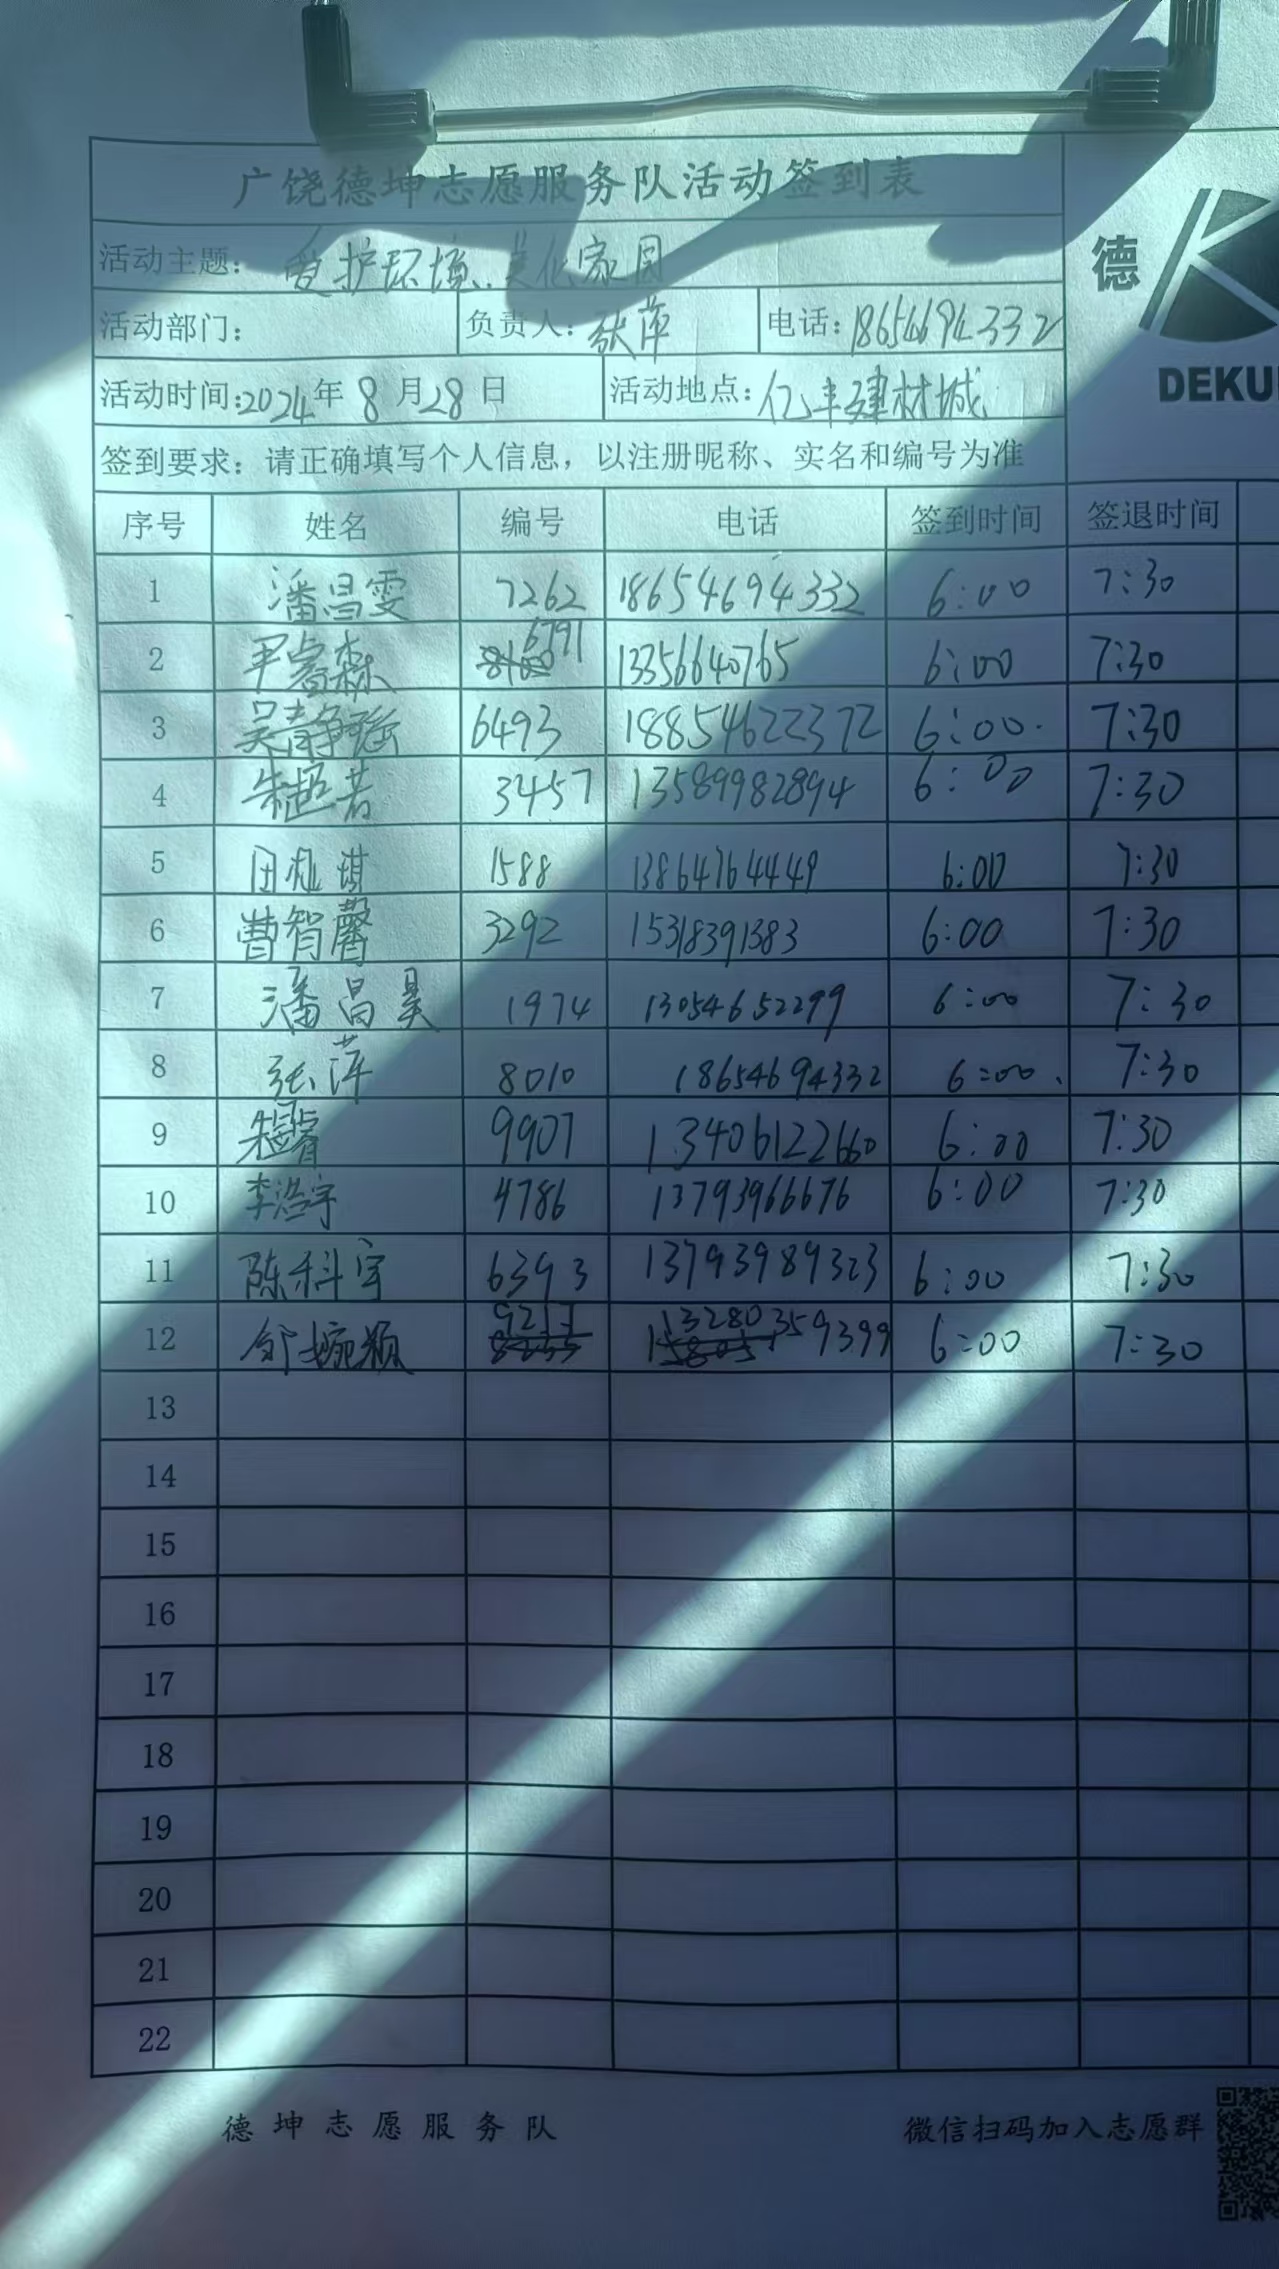 广饶德坤志愿服务队活动签到表
德
DEKU
活动主题：爱护环境、美化家园
活动部门： 负责人：张萍 电话：18654694332
活动时间：2024年8月28日 活动地点：亿丰建材城
签到要求：请正确填写个人信息，以注册昵称、实名和编号为准
序号 姓名 编号 电话 签到时间 签退时间
1 潘昌雯 7262 18654694332 6:00 7:30
2 尹睿森 6791 13356640765 6:00 7:30
3 吴静瑶 6493 18854622372 6:00 7:30
4 朱超若 3457 13589982894 6:00 7:30
5 田 琪 1588 13864764449 6:00 7:30
6 曹智馨 3292 15318391383 6:00 7:30
7 潘昌昊 1974 13054652299 6:00 7:30
8 张萍 8010 18654694332 6:00 7:30
9 9907 13406122660 6:00 7:30
10 李浩宇 4786 13793966676 6:00 7:30
11 陈科宇 6393 13793989323 6:00 7:30
12 邹婉颖 13280359399 6:00 7:30
13
14
15
16
17
18
19
20
21
22
德坤志愿服务队 微信扫码加入志愿群